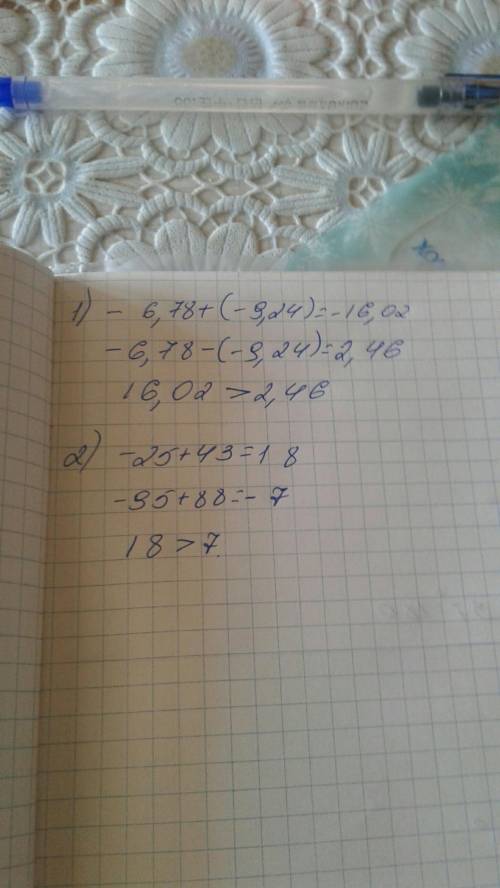 1) - 6,78+(-9,24)=-16,02
-6,78-(-9,24)=2,46
16,02 > 2,46
2) -25+43=18
-95+88=-7
18 > 7.